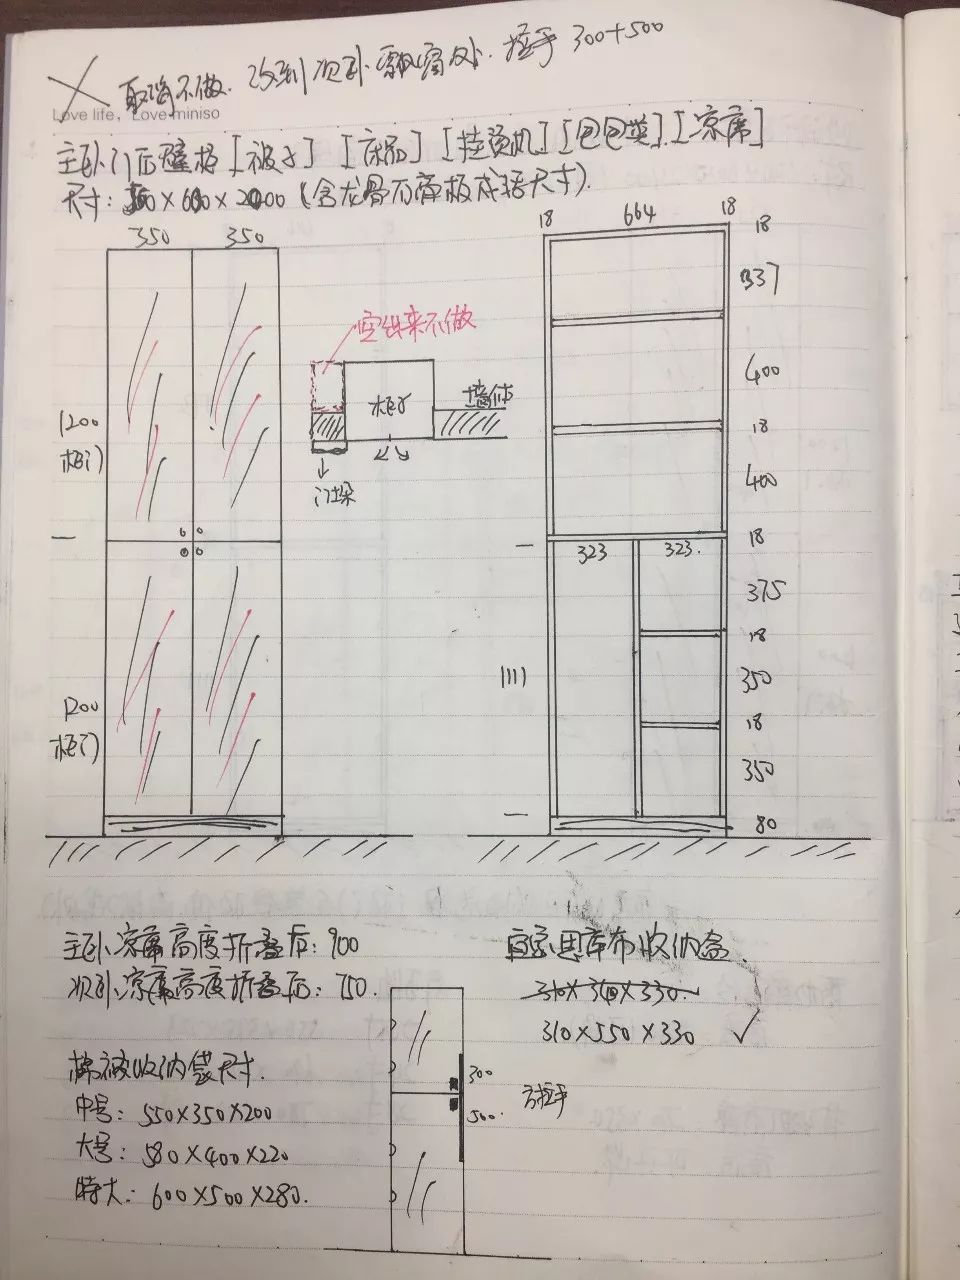 取消不做. 改到次卧飘窗处. 拉手 300+500
Love life, Love miniso
主卧门后壁柜 [被子] [床品] [挂烫机] [包包类] [凉席]
尺寸: ×600×2000 (含龙骨石膏板成活尺寸).
350 350
18 664 18
18
337
空出来不做
柜子
墙体
400
18
门垛
1200
柜门
400
18
323 323.
375
18
1111
350
18
1200
柜门
350
80
主卧凉席高度折叠后: 900
次卧凉席高度折叠后: 750.
宜家思库布收纳盒.
310×340×330.
310×550×330 ✓
棉被收纳袋尺寸.
中号: 550×350×200
大号: 580×400×220
特大: 600×500×280.
300
500.
拉手